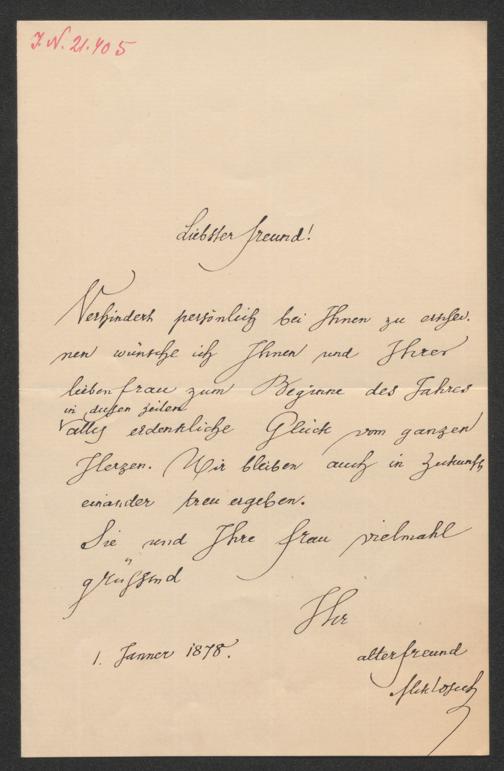 J. N. 21.405
Liebster Freund!
Verhindert persönlich bei Ihnen zu erschei-
nen wünsche ich Ihnen und Ihrer
lieben Frau zum Beginne des Jahres
in diesen Zeilen
alles erdenkliche Glück vom ganzen
Herzen. Wir bleiben auch in Zukunft
einander treu ergeben.
Sie und Ihre Frau vielmahl
grüßend
Ihr
1. Jänner 1878.
alter Freund
Miklosich